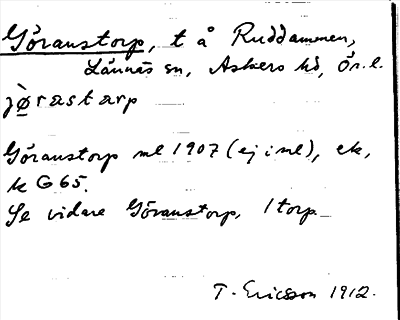 Göranstorp, t å Ruddammen,
Lännäs sn, Askers hd, Ör. l.
jø̀rastarp
Göranstorp ml 1907 (ej i ml), ek,
k G 65.
Se vidare Göranstorp, 1 torp.
T. Ericsson 1912.